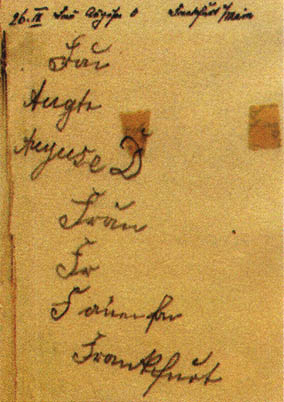 26. II Frau Auguste D Frankfurt/Main
Fau
Augte
Auguse D
Fräun
Fr
Frankfurt